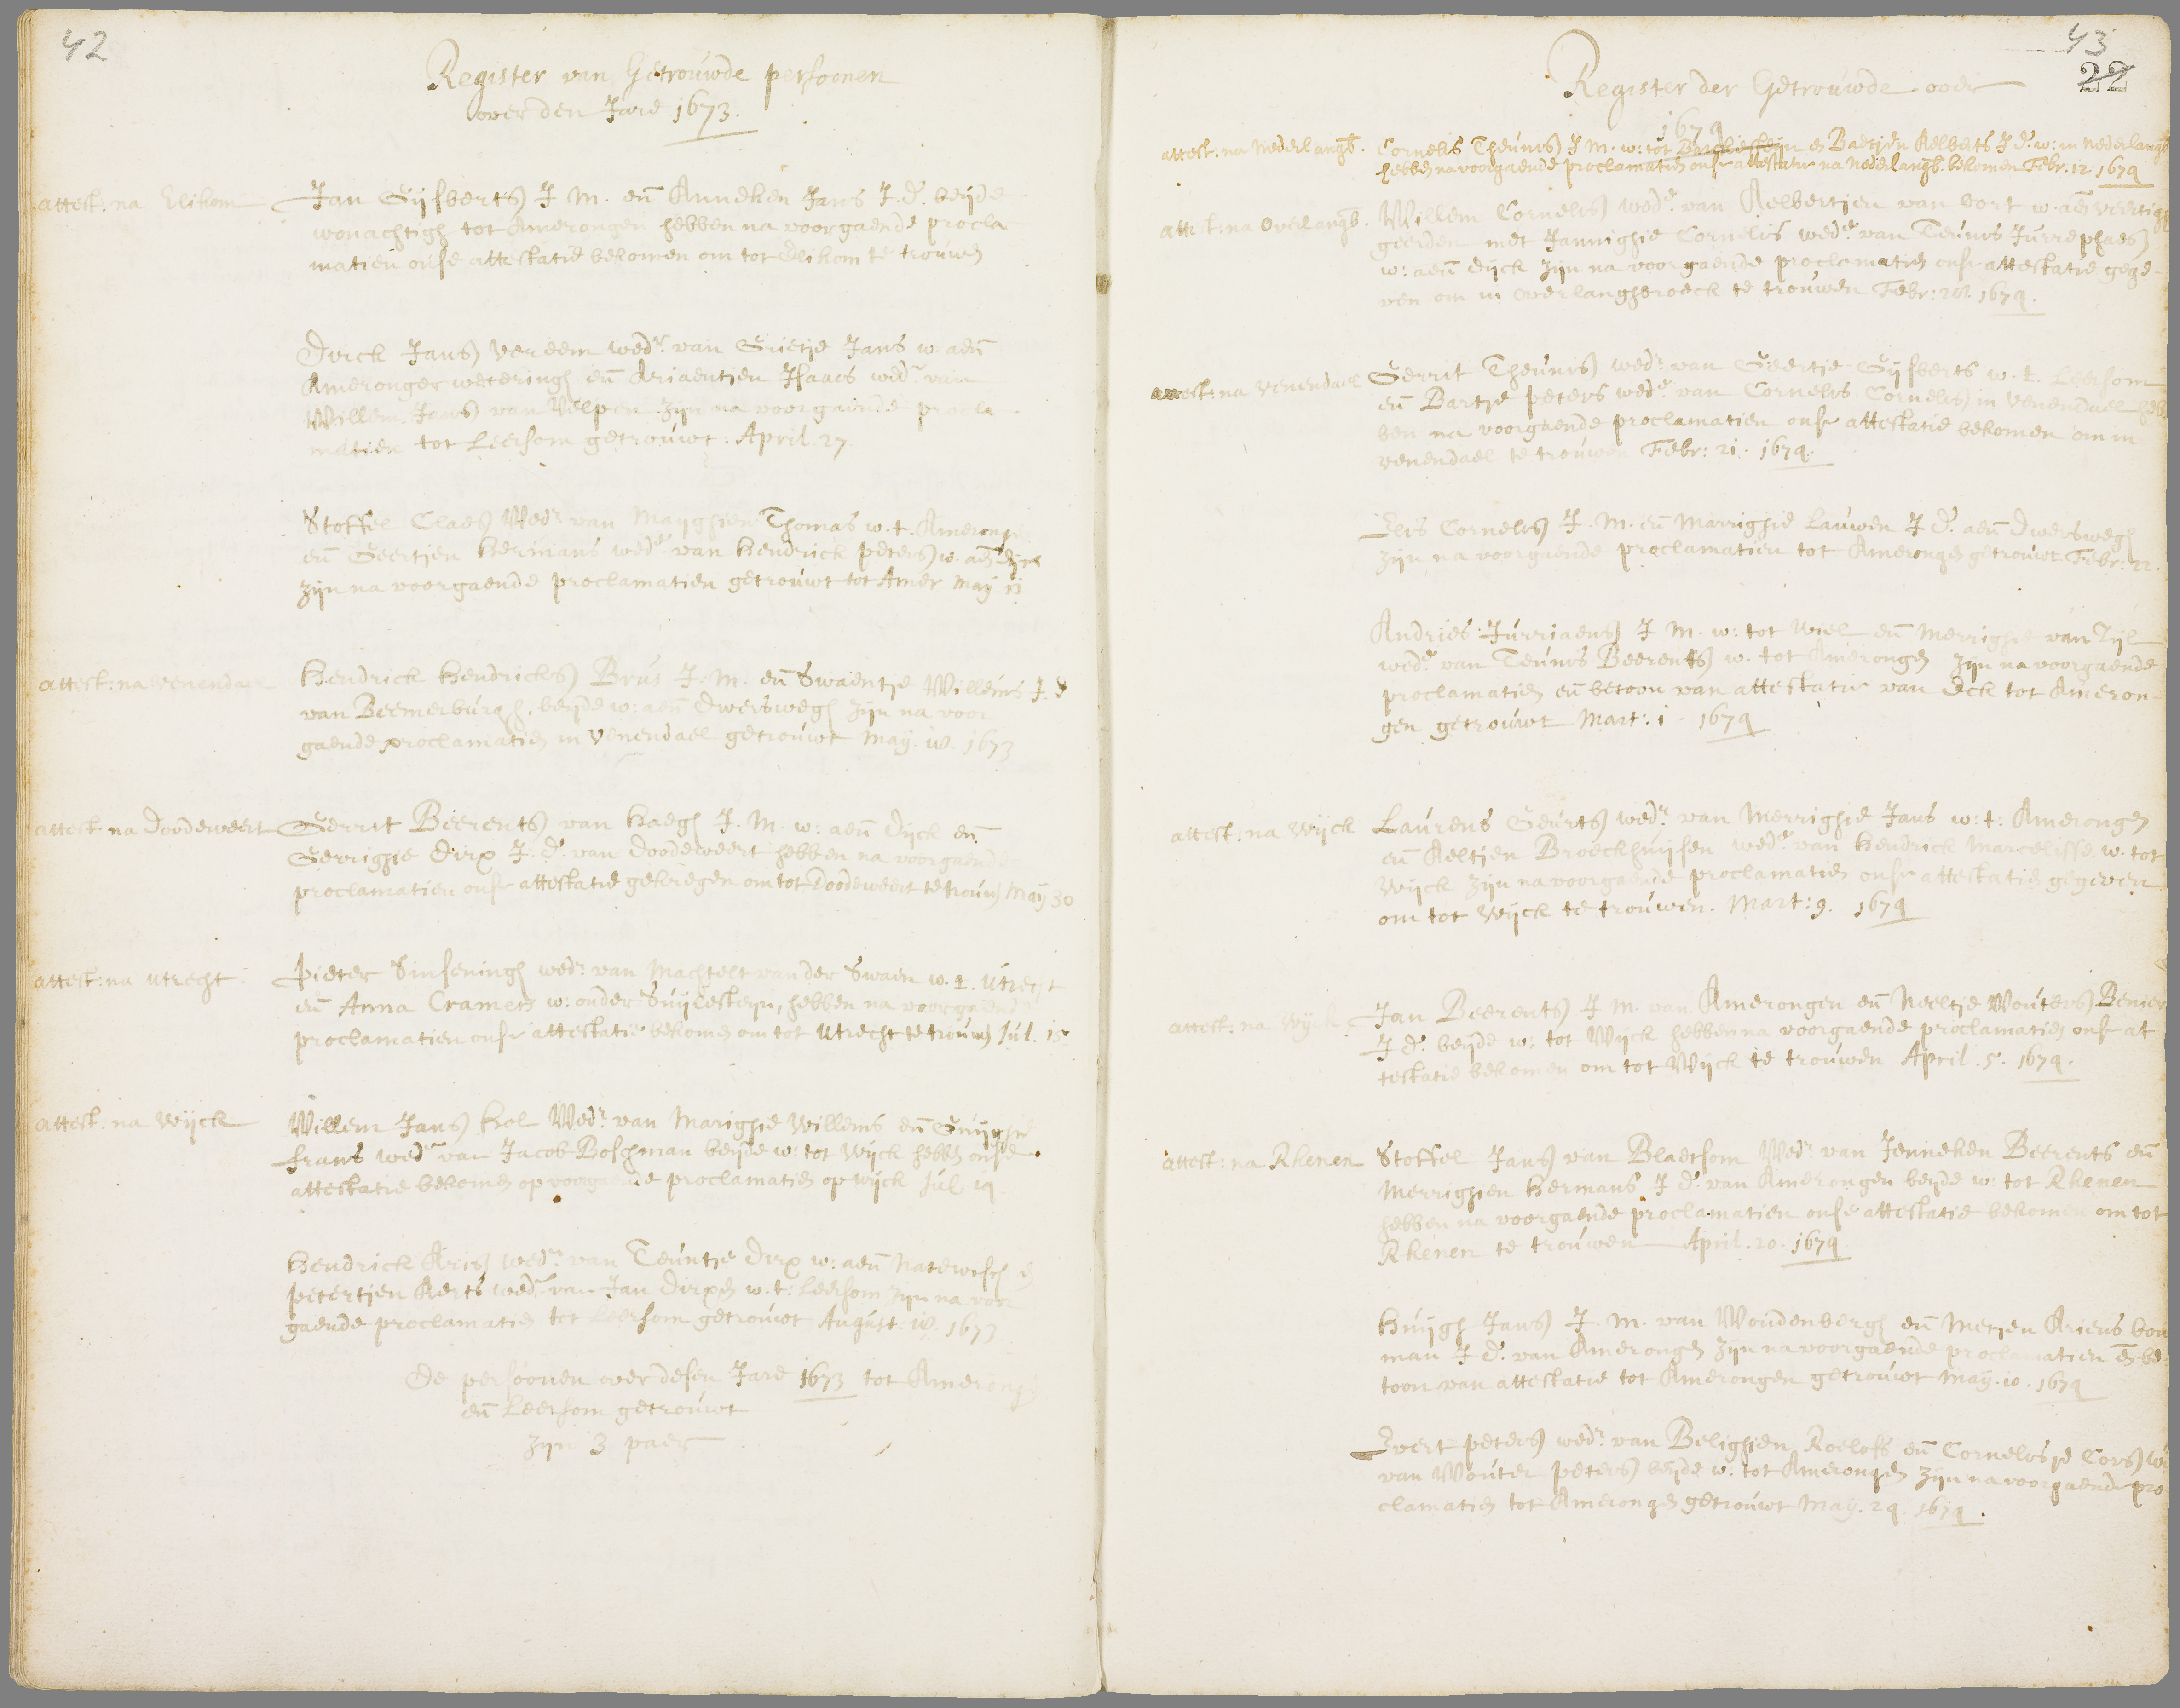 42
Register van Getrouwde persoonen
over den Jare 1673.
attest. na Elikom
Jan Gijsberts J M. en Anneken Jans J. d. beijde
wonachtigh tot Amerongen hebben na voorgaende procla
matien onse attestatie bekomen om tot Elikom te trouwen
Dirck Jans Vereem wedr. van Grietje Jans w. aen
Ameronger weteringh en Ariaentjen Isaacs wedr van
Willem Jans van Velpen zijn na voorgaende procla
matien tot Leersom getrouwt. April. 27.
Stoffel Claes Wedr van Maijghien Thomas w. t. Amerong
en Geertjen Hermans wede van Hendrick Peters w. aen dijck
zijn na voorgaende proclamatien getrouwt tot Amer May. 11
attest: na venendael
Hendrick Hendricks Brus J. M. en Swaentje Willems J. d
van Beemerburgh. beijde w: aen Dwerswegh zijn na voor
gaende proclamatien in Venendael getrouwt May. 18. 1673
attest na Doodeweert
Gerrit Beerents van Haegh J. M. w: aen Dijck en
Gerrighie Dirx J. d. van Doodeweert hebben na voorgaend
proclamatien onse attestatie gekregen om tot Doodeweert te trouwen May 30
attest: na Utrecht
Pieter Sinseningh wedr: van Machtelt van der Swaen w. t. Utrecht
en Anna Cramers w: onder Suijlesteijn, hebben na voorgaende
proclamatien onse attestatie bekomen om tot Utrecht te trouwen Jul. 15
attest. na Wijck
Willem Jans Kol Wedr van Marighie Willems en Guijrtie
Frans wedr van Jacob Boschman beijde w: tot Wijck hebben onse
attestatie bekomen op voorgaende proclamatien op Wijck Jul 19
Hendrick Aris wedr. van Teuntje Dirx w: aen Natewisch en
Petertjen Aerts wedr van Jan Dirxen w. t: Leersom zijn na voor
gaende proclamatien tot Leersom getrouwt August: 10. 1673
De persoonen over desen Jare 1673 tot Amerong
en Leersom getrouwt
zijn 3 paer
43
22
Register der Getrouwde over
1674
attest. na Nederlangb.
Cornelis Theunis J M. w: tot en Baetjen Aelberts J d. w: in Nederlangb
hebben na voorgaende proclamatien onse attestatie na Nederlangb. bekomen Febr. 12 1674
attest: na Overlangb.
Willem Cornelis wedr. van Aelbertjen van Oort w. aen veertigh
geerden met Jannighie Cornelis wede van Teunis Jurrephaes
w: aen Dijck zijn na voorgaende proclamatien onse attestatie gege-
ven om in Overlangbroeck te trouwen Febr: 20. 1674.
attest: na Venendael
Gerrit Theunis wedr van Geertje Gijsberts w. t. Leersom
en Bartje Peters wede van Cornelis Cornelis in Venendael heb
ben na voorgaende proclamatien onse attestatie bekomen om in
Venendael te trouwen Febr: 21. 1674.
Elis Cornelis J. M. en Marrighie Lauwen J d. aen Dwerswegh
zijn na voorgaende proclamatien tot Amerongen getrouwt Febr: 22.
Andries Jurriaens J M. w: tot Wiel en Merrighie van Zijl
wede van Teunis Beerents w. tot Amerongen zijn na voorgaende
proclamatien en betoon van attestatie van Eck tot Ameron-
gen getrouwt Mart: 1. 1674
attest: na Wijck
Laurens Geurts wedr van Merrighie Jans w: t: Amerongen
en Aeltjen Broeckhuijsen wede. van Hendrick Marcelisse w. tot
Wijck zijn na voorgaende proclamatien onse attestatien gegeven
om tot Wijck te trouwen. Mart: 9. 1674
attest: na Wijck
Jan Beerents J M. van Amerongen en Neeltje Wouters Bemer
J d. beijde w: tot Wijck hebben na voorgaende proclamatien onse at
testatie bekomen om tot Wijck te trouwen April. 5. 1674.
attest: na Rhenen
Stoffel Jans van Bladtsom Wedr van Jenneken Beerents en
Merrighien Hermans J d. van Amerongen beijde w: tot Rhenen
hebben na voorgaende proclamatien onse attestatie bekomen om tot
Rhenen te trouwen April. 20. 1674
Huijgh Jans J. M. van Woudenbergh en Metjen Ariens bou
man J d. van Amerongen zijn na voorgaende proclamatien en be
toon van attestatie tot Amerongen getrouwt May. 10. 1674
Evert Peters wedr van Belighien Roelofs en Cornelisje Cors we
van Wouter Peters beijde w. tot Amerongen zijn na voorgaende pro
clamatien tot Amerongen getrouwt May. 24. 1674.